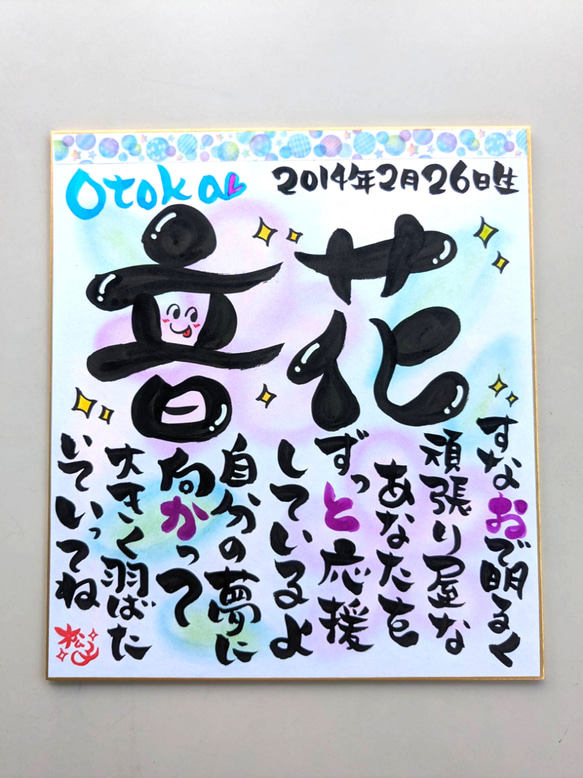 Otoka
2014年2月26日生
音花
すなおで明るく
頑張り屋な
あなたを
ずっと応援
しているよ
自分の夢に
向かって
大きく羽ばた
いていってね